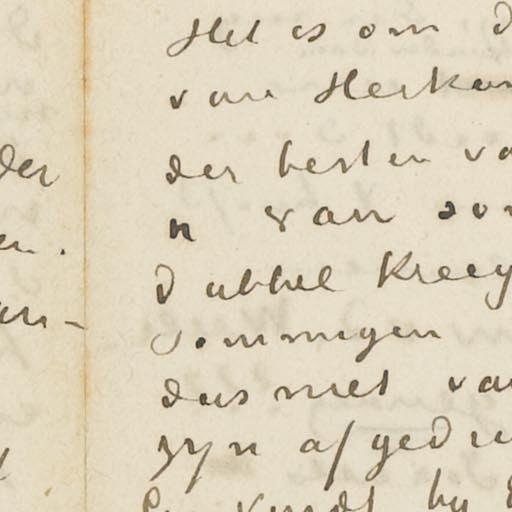 der
en.
an-
Het is om d
van Herkom
der besten va
n van som
dubbel kreeg
sommigen
dus met va
zyn afgedru
En vindt by